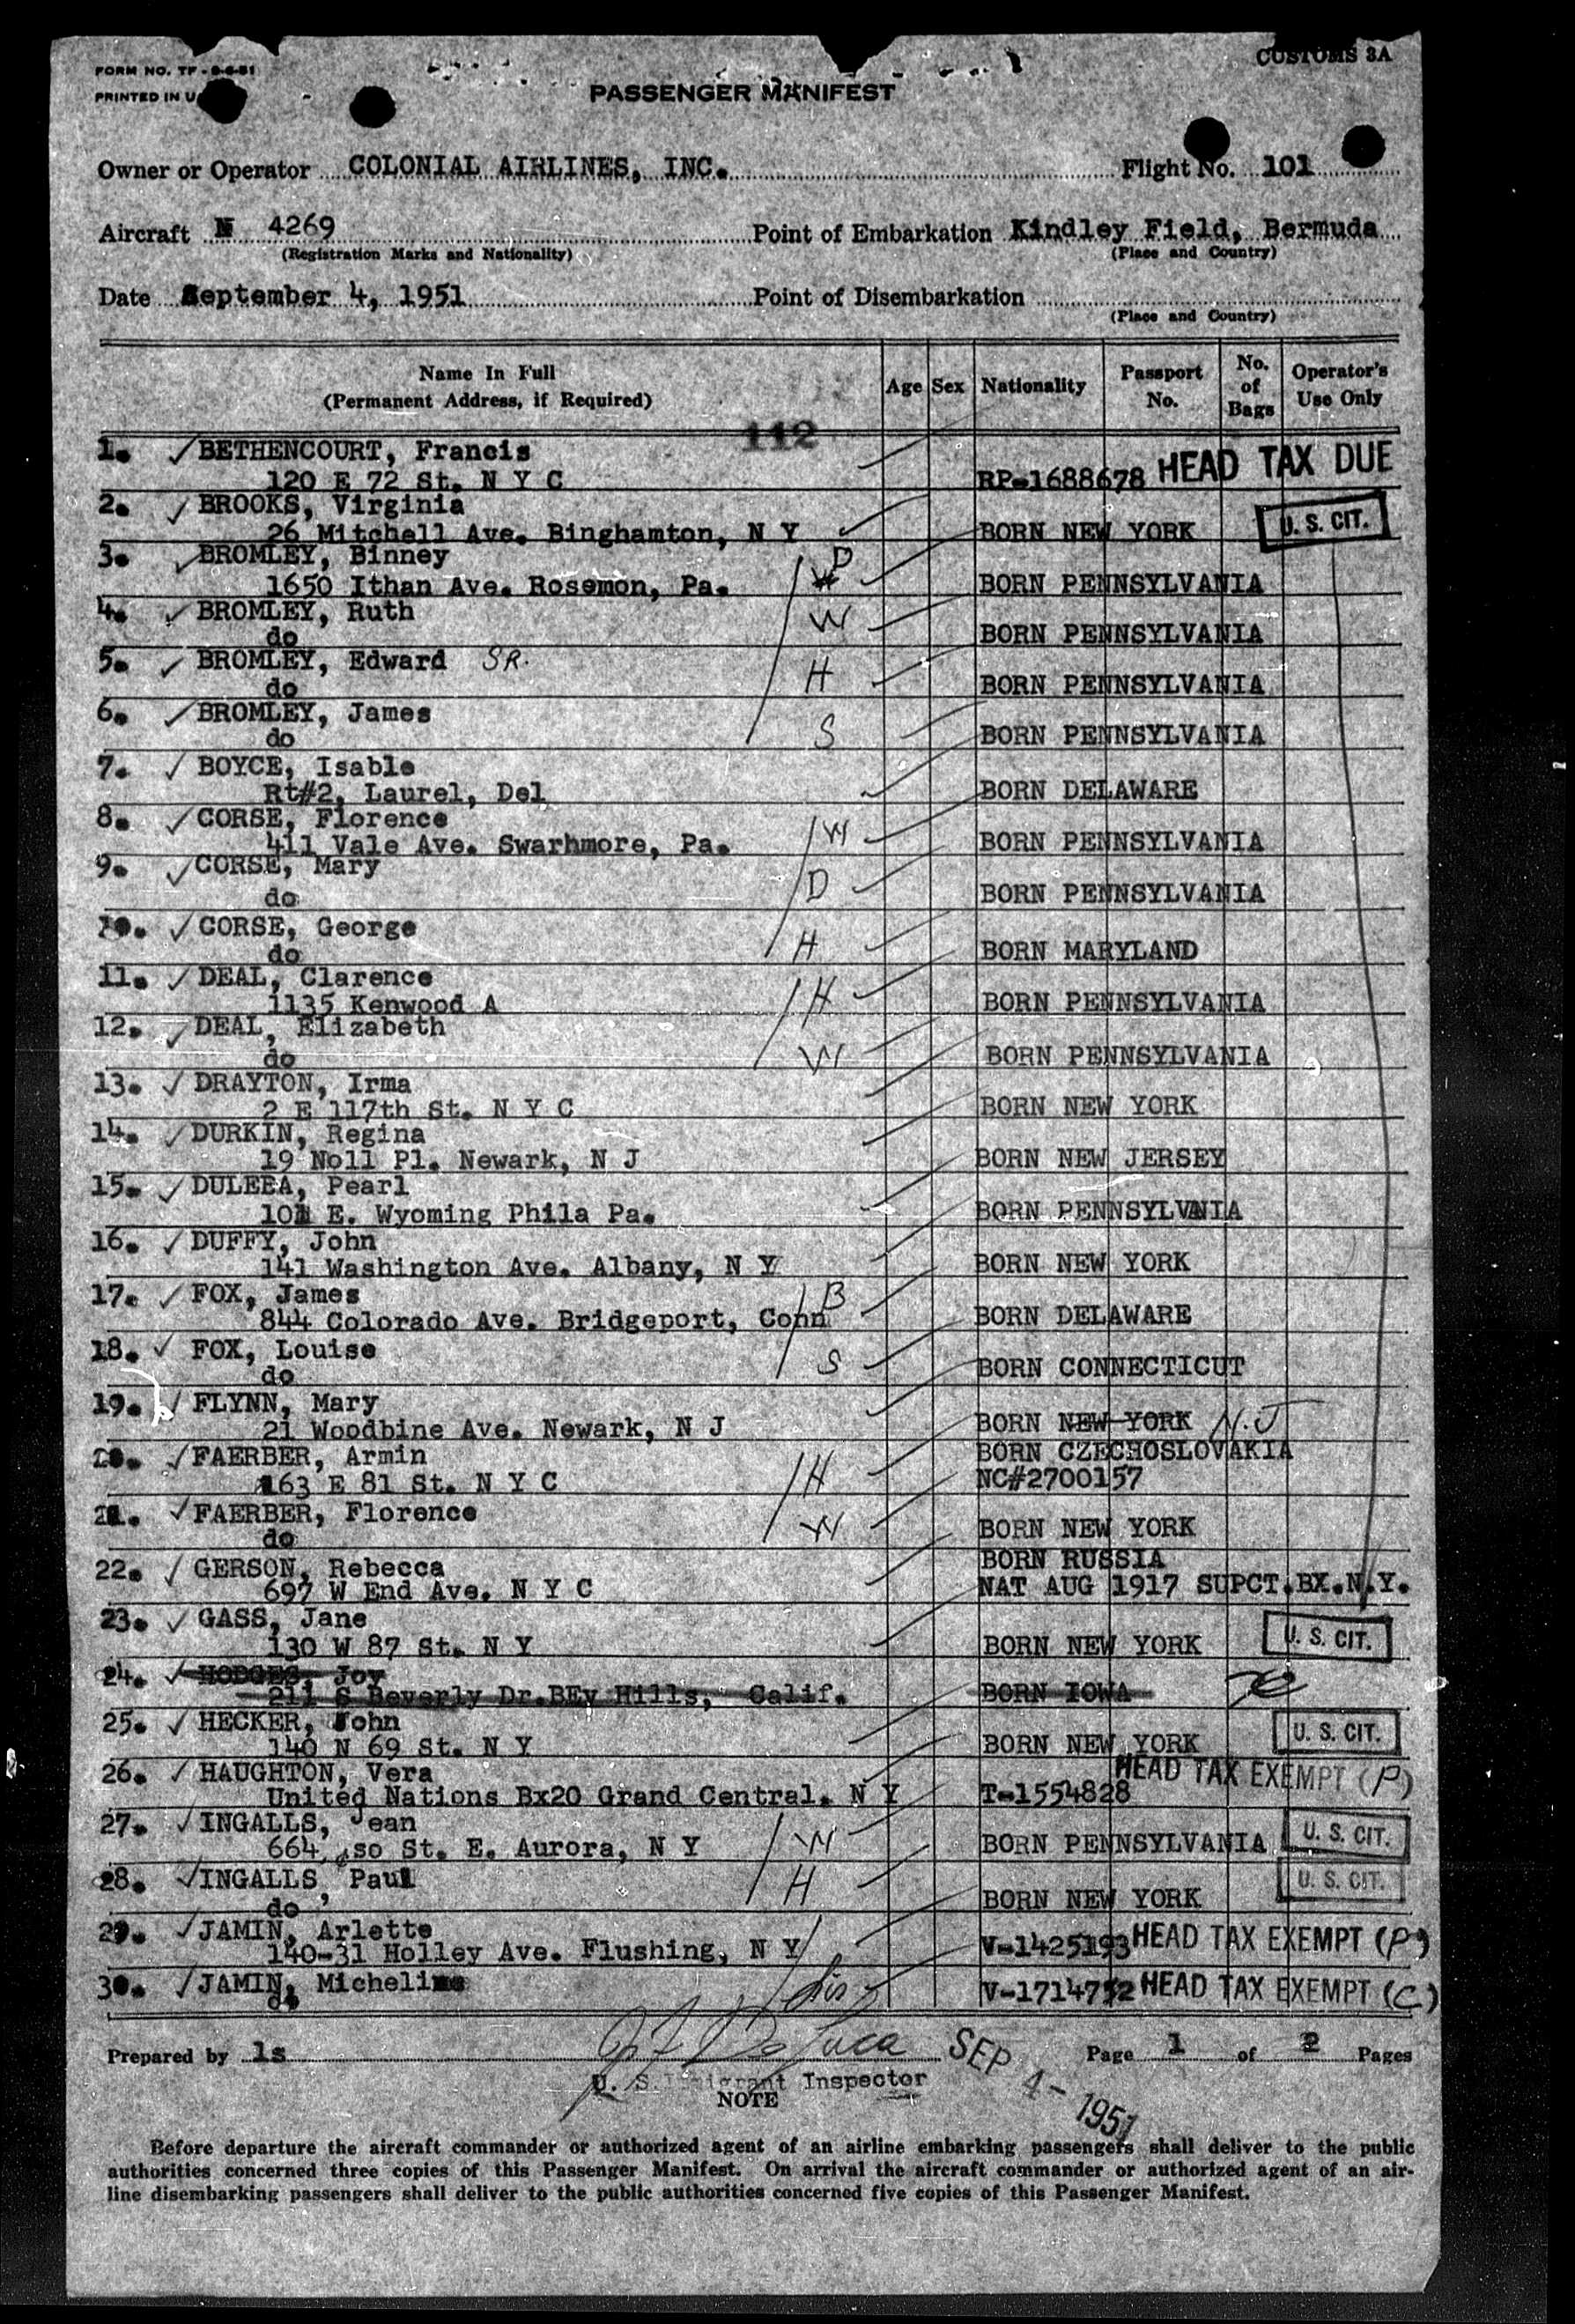 CUSTOMS 3A
PRINTED IN
PASSENGER MANIFEST
Owner or Operator COLONIAL AIRLINES, INC. Flight No. 101
Aircraft N 4269 Point of Embarkation Kindley Field, Bermuda
(Registration Marks and Nationality) (Place and Country)
Date September 4, 1951 Point of Disembarkation
(Place and Country)
Name In Full
(Permanent Address, if Required)
Age Sex Nationality Passport No. No. of Bags Operator's Use Only
112
1. ✓ BETHENCOURT, Francis
120 E 72 St. N Y C RP-1688678 HEAD TAX DUE
2. ✓ BROOKS, Virginia
26 Mitchell Ave. Binghamton, N Y BORN NEW YORK U. S. CIT.
3. ✓ BROMLEY, Binney D
1650 Ithan Ave. Rosemon, Pa. BORN PENNSYLVANIA
4. ✓ BROMLEY, Ruth W
do BORN PENNSYLVANIA
5. ✓ BROMLEY, Edward SR. H
do BORN PENNSYLVANIA
6. ✓ BROMLEY, James S
do BORN PENNSYLVANIA
7. ✓ BOYCE, Isable
Rt#2, Laurel, Del BORN DELAWARE
8. ✓ CORSE, Florence W
411 Vale Ave. Swarhmore, Pa. BORN PENNSYLVANIA
9. ✓ CORSE, Mary D
do BORN PENNSYLVANIA
10. ✓ CORSE, George H
do BORN MARYLAND
11. ✓ DEAL, Clarence H
1135 Kenwood A BORN PENNSYLVANIA
12. ✓ DEAL, Elizabeth W
do BORN PENNSYLVANIA
13. ✓ DRAYTON, Irma
2 E 117th St. N Y C BORN NEW YORK
14. ✓ DURKIN, Regina
19 Noll Pl. Newark, N J BORN NEW JERSEY
15. ✓ DULEBA, Pearl
101 E. Wyoming Phila Pa. BORN PENNSYLVANIA
16. ✓ DUFFY, John
141 Washington Ave. Albany, N Y BORN NEW YORK
17. ✓ FOX, James B
844 Colorado Ave. Bridgeport, Conn BORN DELAWARE
18. ✓ FOX, Louise S
do BORN CONNECTICUT
19. ✓ FLYNN, Mary
21 Woodbine Ave. Newark, N J BORN NEW YORK N.J
20. ✓ FAERBER, Armin H BORN CZECHOSLOVAKIA
163 E 81 St. N Y C NC#2700157
21. ✓ FAERBER, Florence W
do BORN NEW YORK
22. ✓ GERSON, Rebecca BORN RUSSIA
697 W End Ave. N Y C NAT AUG 1917 SUPCT.BX.N.Y.
23. ✓ GASS, Jane
130 W 87 St. N Y BORN NEW YORK U. S. CIT.
24. ✓ HODGES, Joy
211 S Beverly Dr.BEv Hills, Calif. BORN IOWA
25. ✓ HECKER, John
140 N 69 St. N Y BORN NEW YORK U. S. CIT.
26. ✓ HAUGHTON, Vera HEAD TAX EXEMPT (P)
United Nations Bx20 Grand Central. N Y T-1554828
27. ✓ INGALLS, Jean W
664 so St. E. Aurora, N Y BORN PENNSYLVANIA U. S. CIT.
28. ✓ INGALLS, Paul H U. S. CIT.
do BORN NEW YORK
29. ✓ JAMIN, Arlette
140-31 Holley Ave. Flushing, N Y V-1425193 HEAD TAX EXEMPT (P)
30. ✓ JAMIN, Micheline Sis
do V-1714752 HEAD TAX EXEMPT (C)
Prepared by ls SEP 4-1951 Page 1 of 2 Pages
U. S. Immigrant Inspector
NOTE
Before departure the aircraft commander or authorized agent of an airline embarking passengers shall deliver to the public
authorities concerned three copies of this Passenger Manifest. On arrival the aircraft commander or authorized agent of an air-
line disembarking passengers shall deliver to the public authorities concerned five copies of this Passenger Manifest.